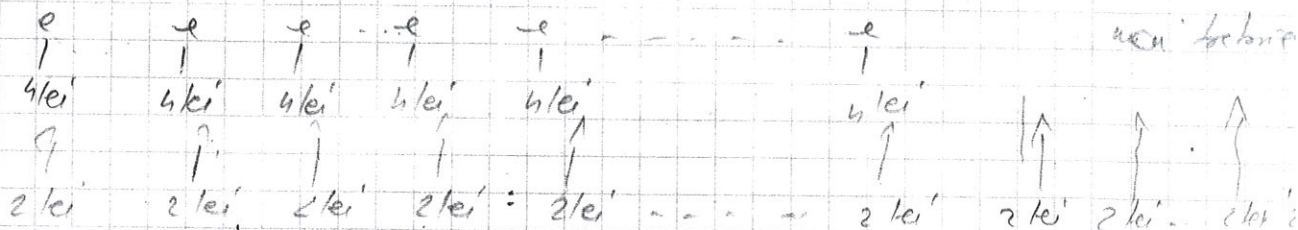 e e e ... e e - - - - - - e mai
4 lei 4 lei 4 lei 4 lei 4 lei 4 lei
2 lei 2 lei 2 lei 2 lei : 2 lei - - - - 2 lei 2 lei 2 lei .. 2 lei 2